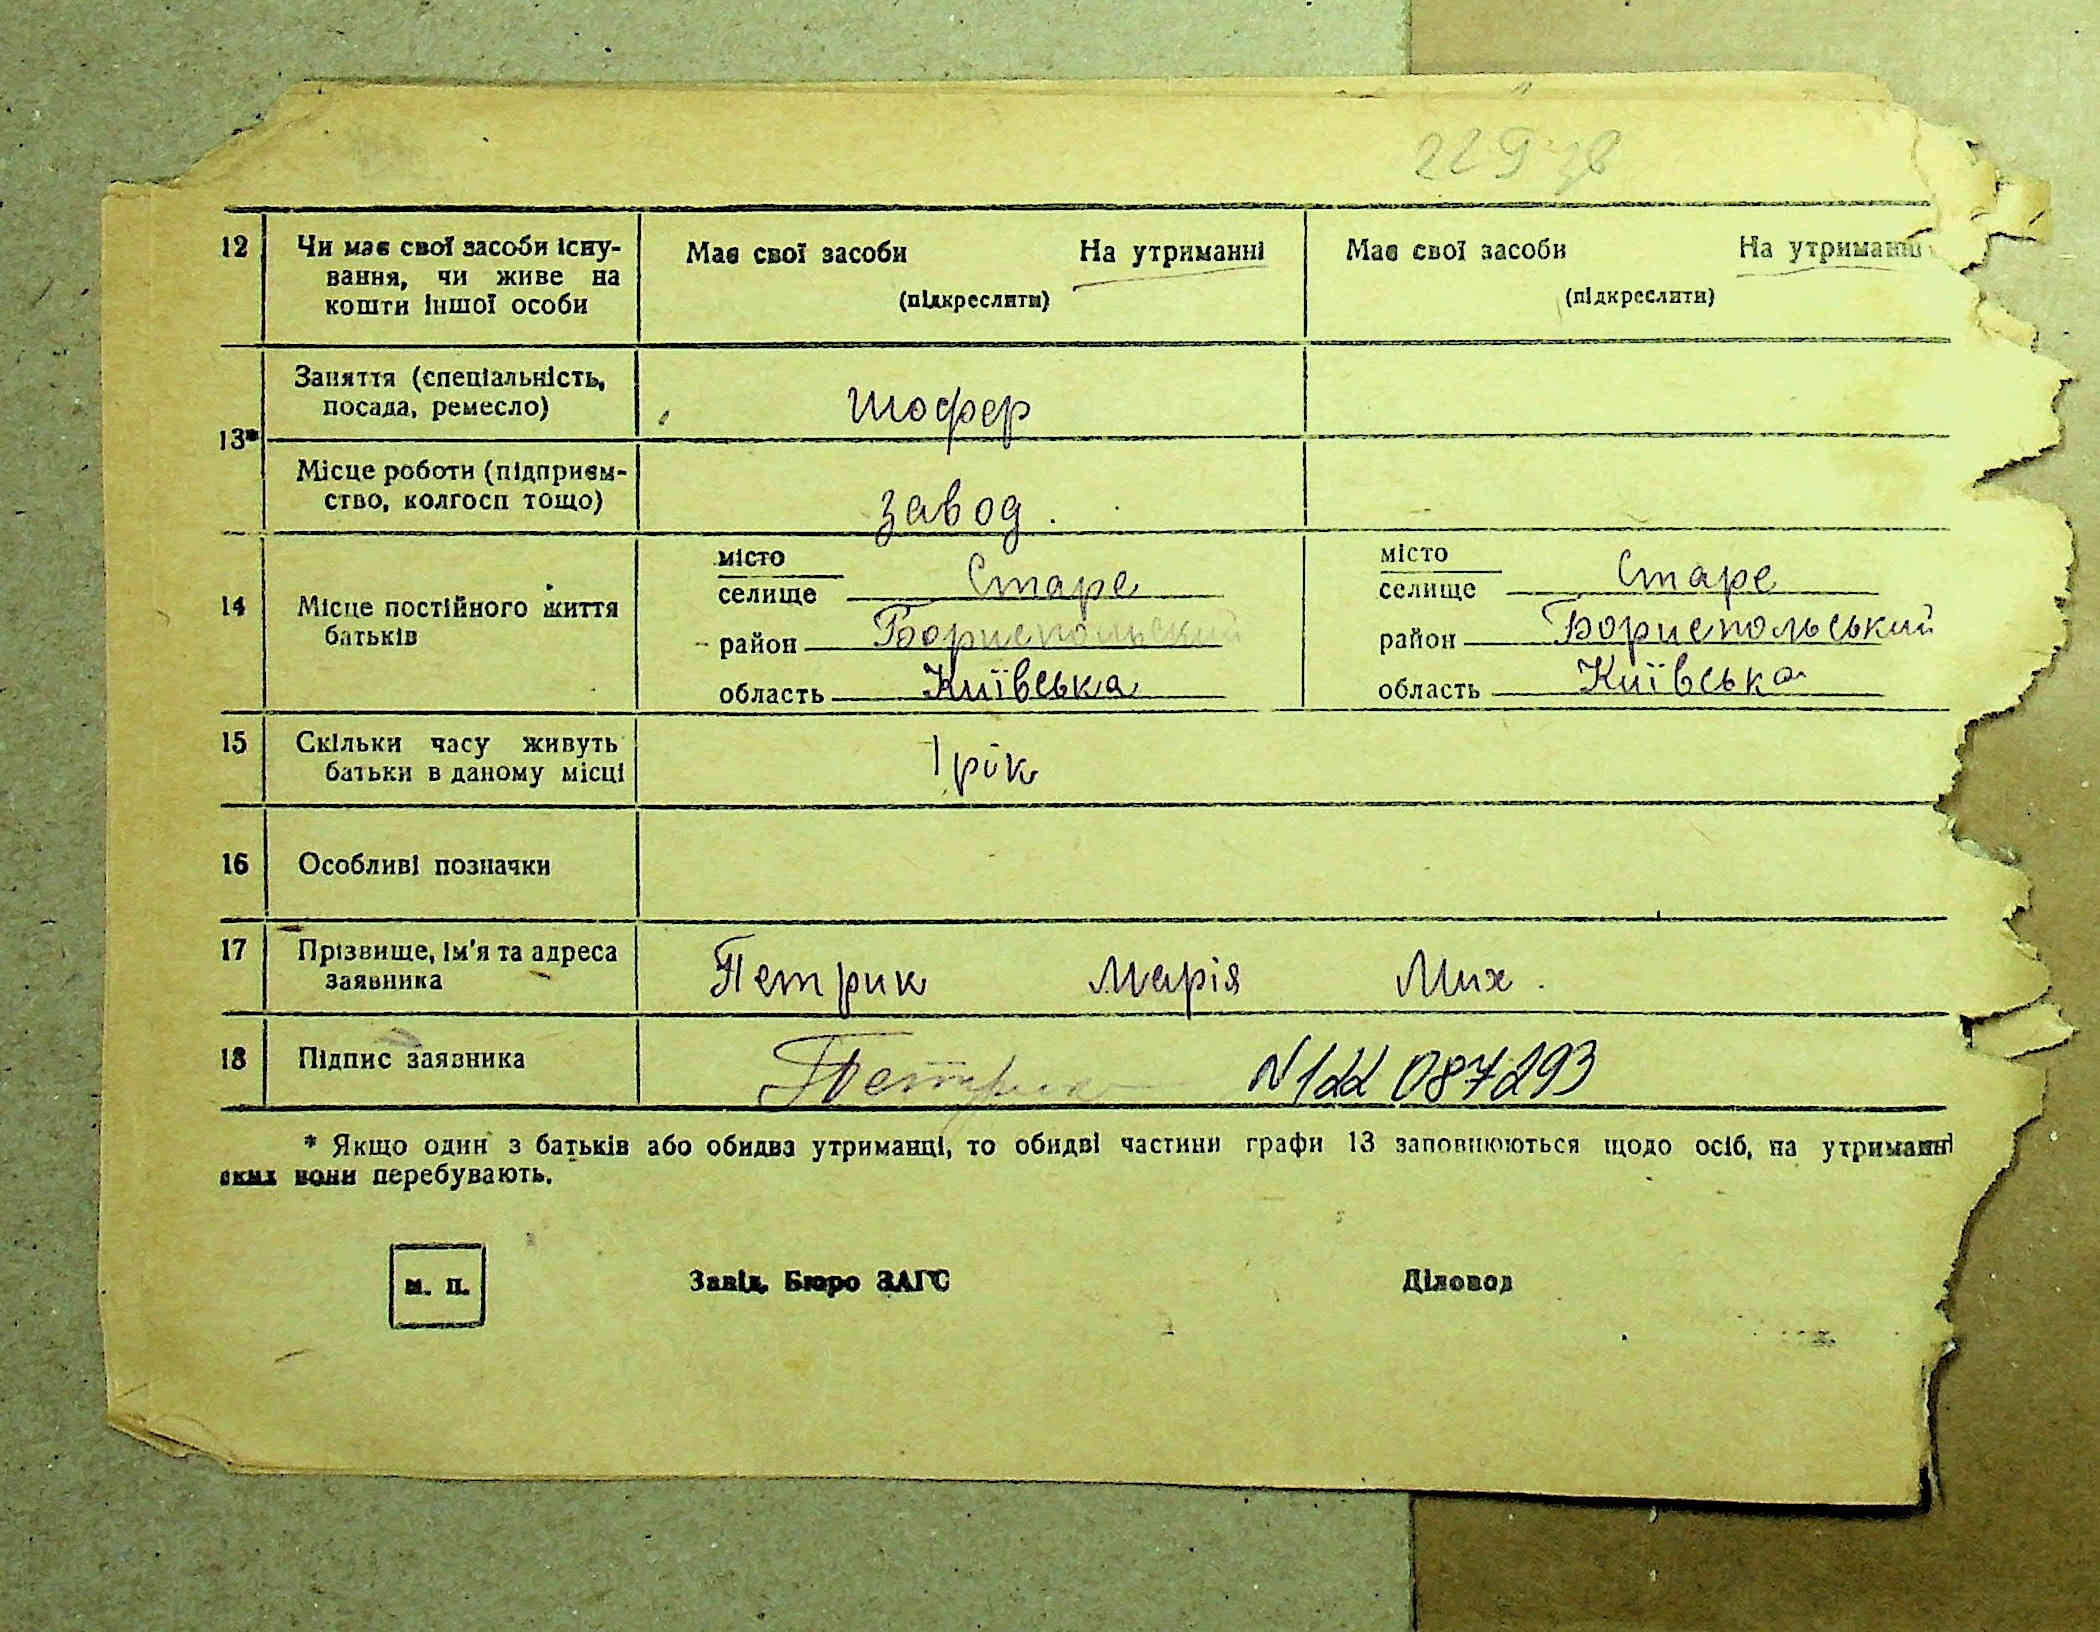 229 зв
12 Чи має свої засоби існу- Має свої засоби На утриманні Має свої засоби На утриманні
вання, чи живе на
кошти іншої особи (підкреслити) (підкреслити)
Заняття (спеціальність,
посада, ремесло) шофер
13*
Місце роботи (підприєм-
ство, колгосп тощо) завод.
місто місто
селище Старе селище Старе
14 Місце постійного життя
батьків район Бориспольський район Бориспольський
область Київська область Київська
15 Скільки часу живуть
батьки в даному місці 1 рік
16 Особливі позначки
17 Прізвище, ім'я та адреса
заявника Петрик Марія Мих.
18 Підпис заявника Петрик N 122 087293
* Якщо один з батьків або обидва утриманці, то обидві частини графи 13 заповнюються щодо осіб, на утриманні
яких вони перебувають.
м. п. Завід. Бюро ЗАГС Діловод